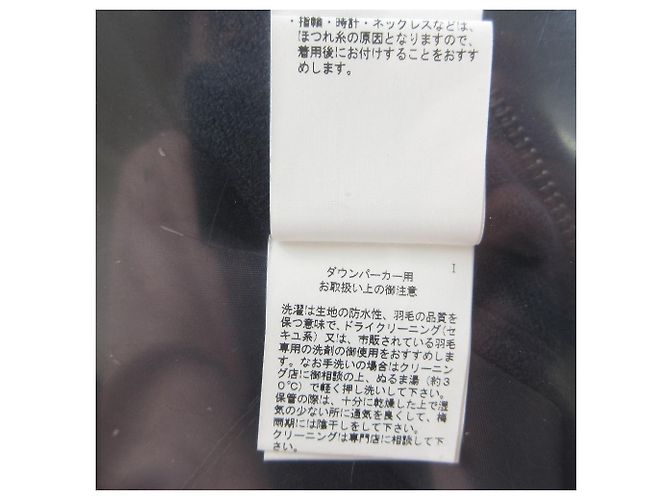 ・指輪・時計・ネックレスなどは、
ほつれ糸の原因となりますので、
着用後にお付けすることをおすす
めします。
I
ダウンパーカー用
お取扱い上の御注意
洗濯は生地の防水性、羽毛の品質を
保つ意味で、ドライクリーニング(セ
キユ系)又は、市販されている羽毛
専用の洗剤の御使用をおすすめしま
す。なお手洗いの場合はクリーニン
グ店に御相談の上、ぬるま湯(約3
0℃)で軽く押し洗いして下さい。
保管の際は、十分に乾燥した上で湿
気の少ない所に通気を良くして、梅
雨期には陰干しをして下さい。
クリーニングは専門店に相談して下
さい。